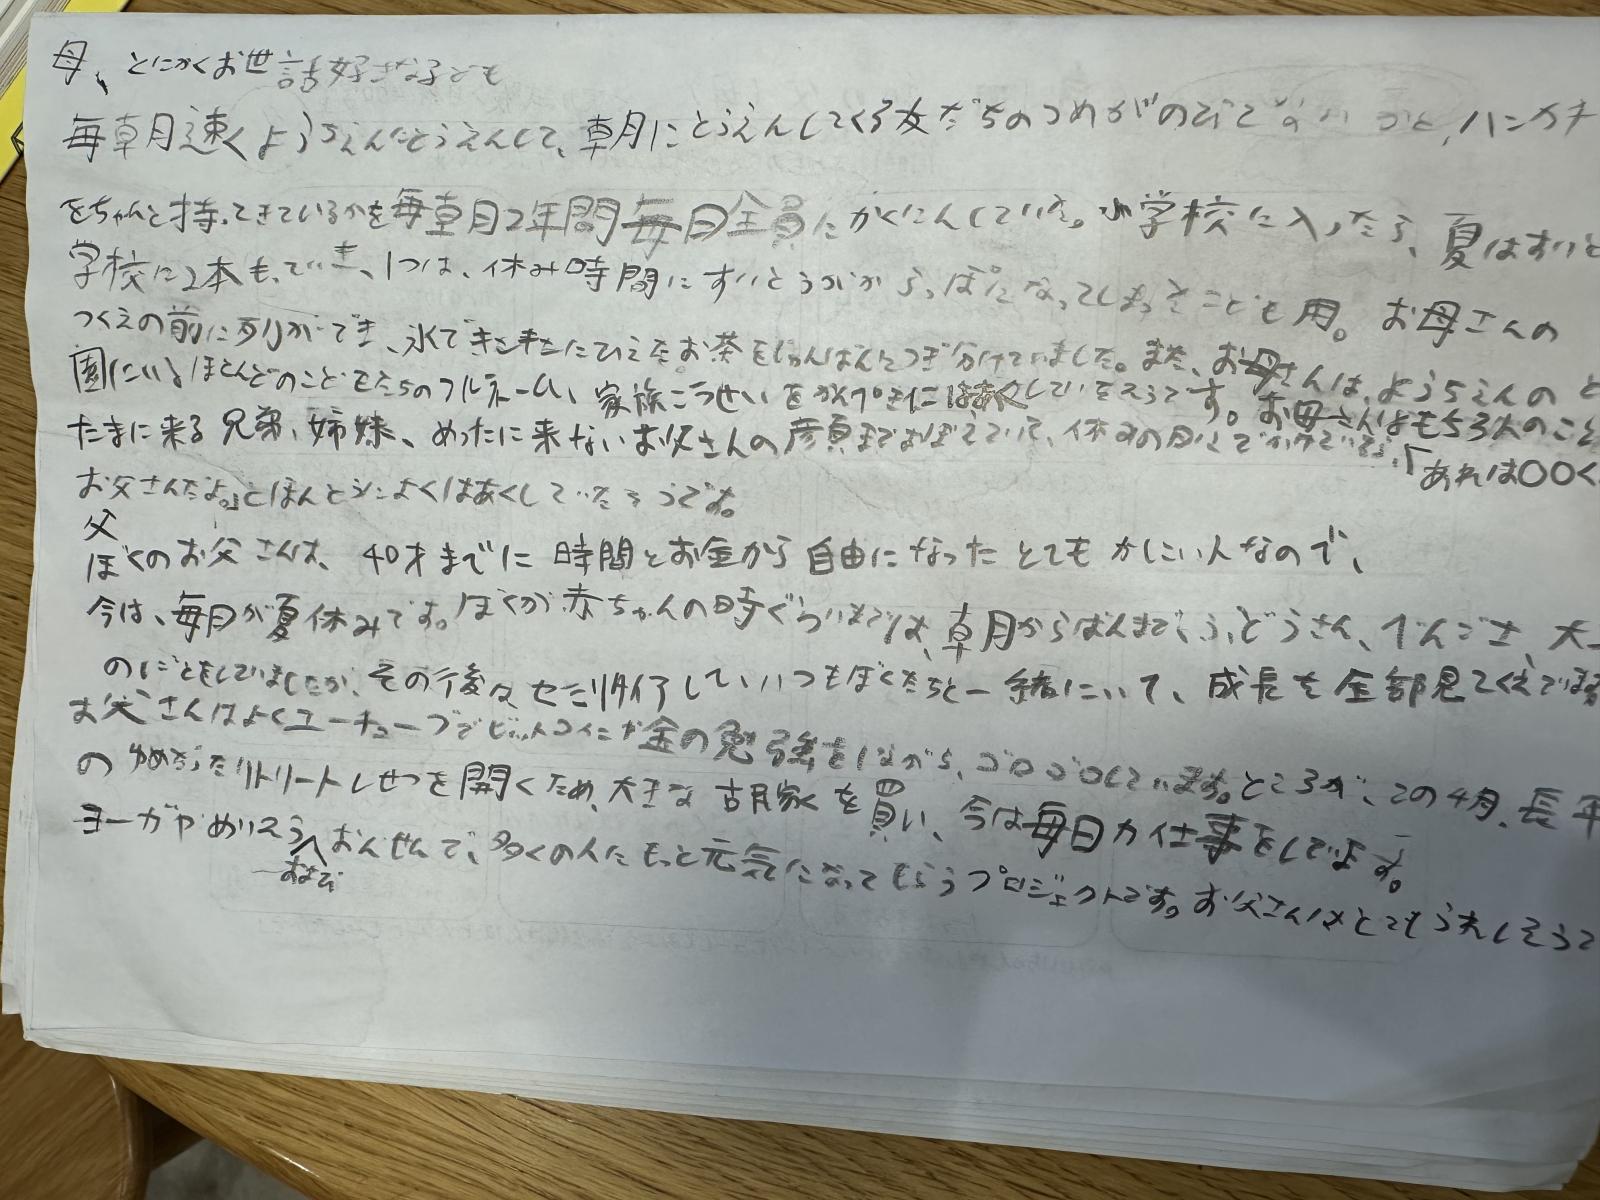 母、とにかくお世話好きな子ども
毎朝速くようちえんにとうえんして、朝にとうえんしてくる友だちのつめがのびてないかと、ハンカチ
をちゃんと持ってきているかを毎朝2年間毎日全員にかくにんしていた。小学校に入ったら、夏はすいと
学校に2本も、でき、1つは、休み時間にすいとうがからっぽになってしまったこども用。お母さんの
つくえの前に列ができ、氷でキンキンにひえたお茶をじゅんばんにつぎ分けていました。また、お母さんは、ようちえんの
園にいるほとんどのこどもたちのフルネーム、家族こうせいをかんぺきにはあくしていたそうです。お母さんはもちろんのこと
たまに来る兄弟、姉妹、めったに来ないお父さんの顔までおぼえていて、休みの日に「あれは〇〇く
お父さんだよ。」とほんとうによくはあくしていたそうです。
父
ぼくのお父さんは、40才までに時間とお金から自由になったとてもかしこい人なので、
今は、毎日が夏休みです。ぼくが赤ちゃんの時ぐらいまでは、朝からばんまで、ふどうさん、べんごさ、大
のしごとをしていましたが、その後はセミリタイアしていつもぼくたちと一緒にいて、成長を全部見てくれて
お父さんはよくユーチューブでビットコインやお金の勉強をしながら、ゴロゴロしています。ところが、この4月、長年
のゆめだったリトリートしせつを開くため、大きな古民家を買い、今は毎日力仕事をしています。
ヨーガやめいそうおんせんで、多くの人にもっと元気になってもらうプロジェクトです。お父さんはとてもうれしそうで
および